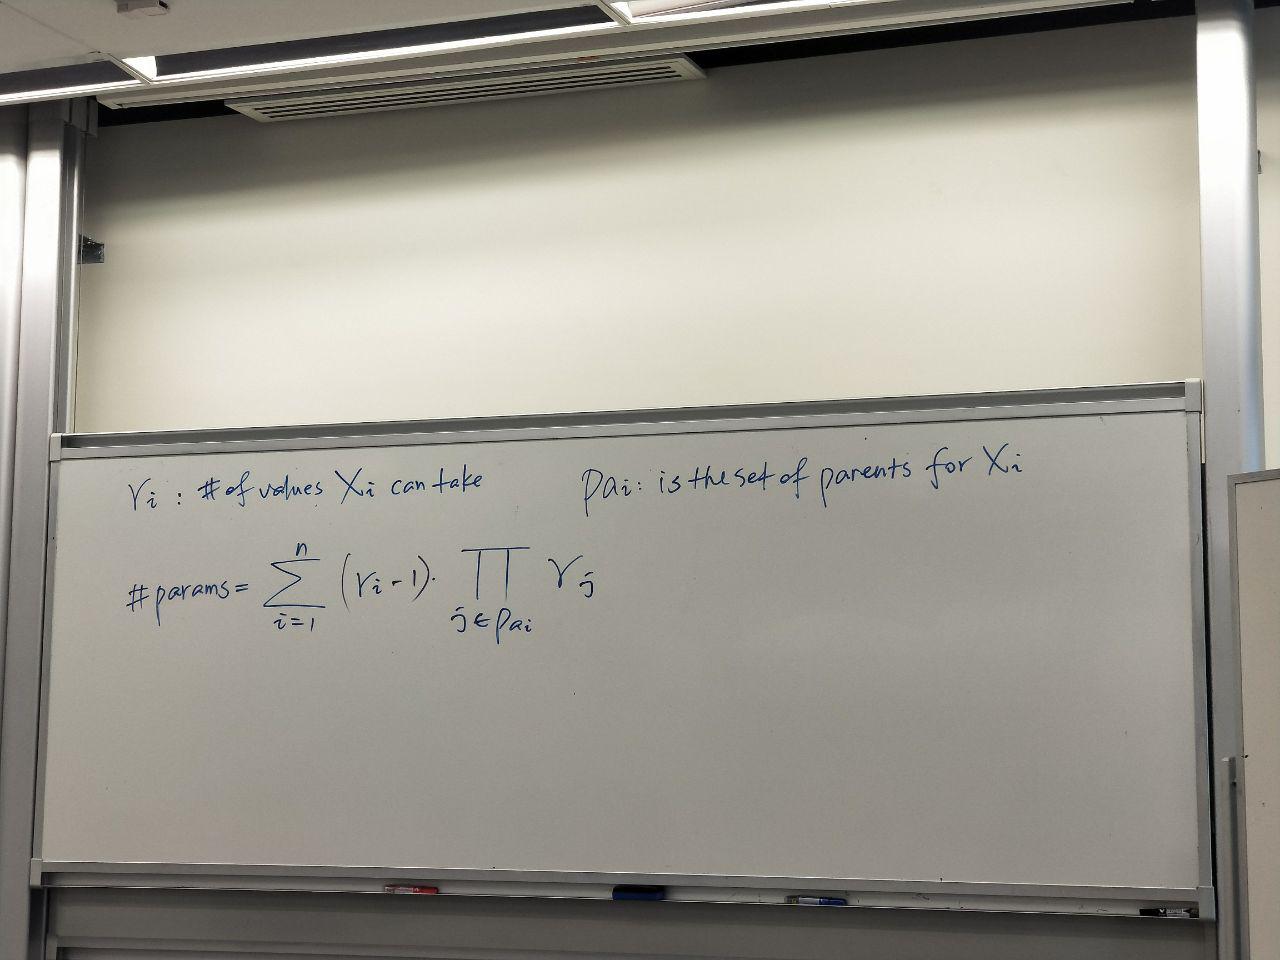 ri : # of values Xi can take
pai: is the set of parents for Xi
#params = ∑ⁿᵢ₌₁ (ri - 1) · ∏ j∈pai rj